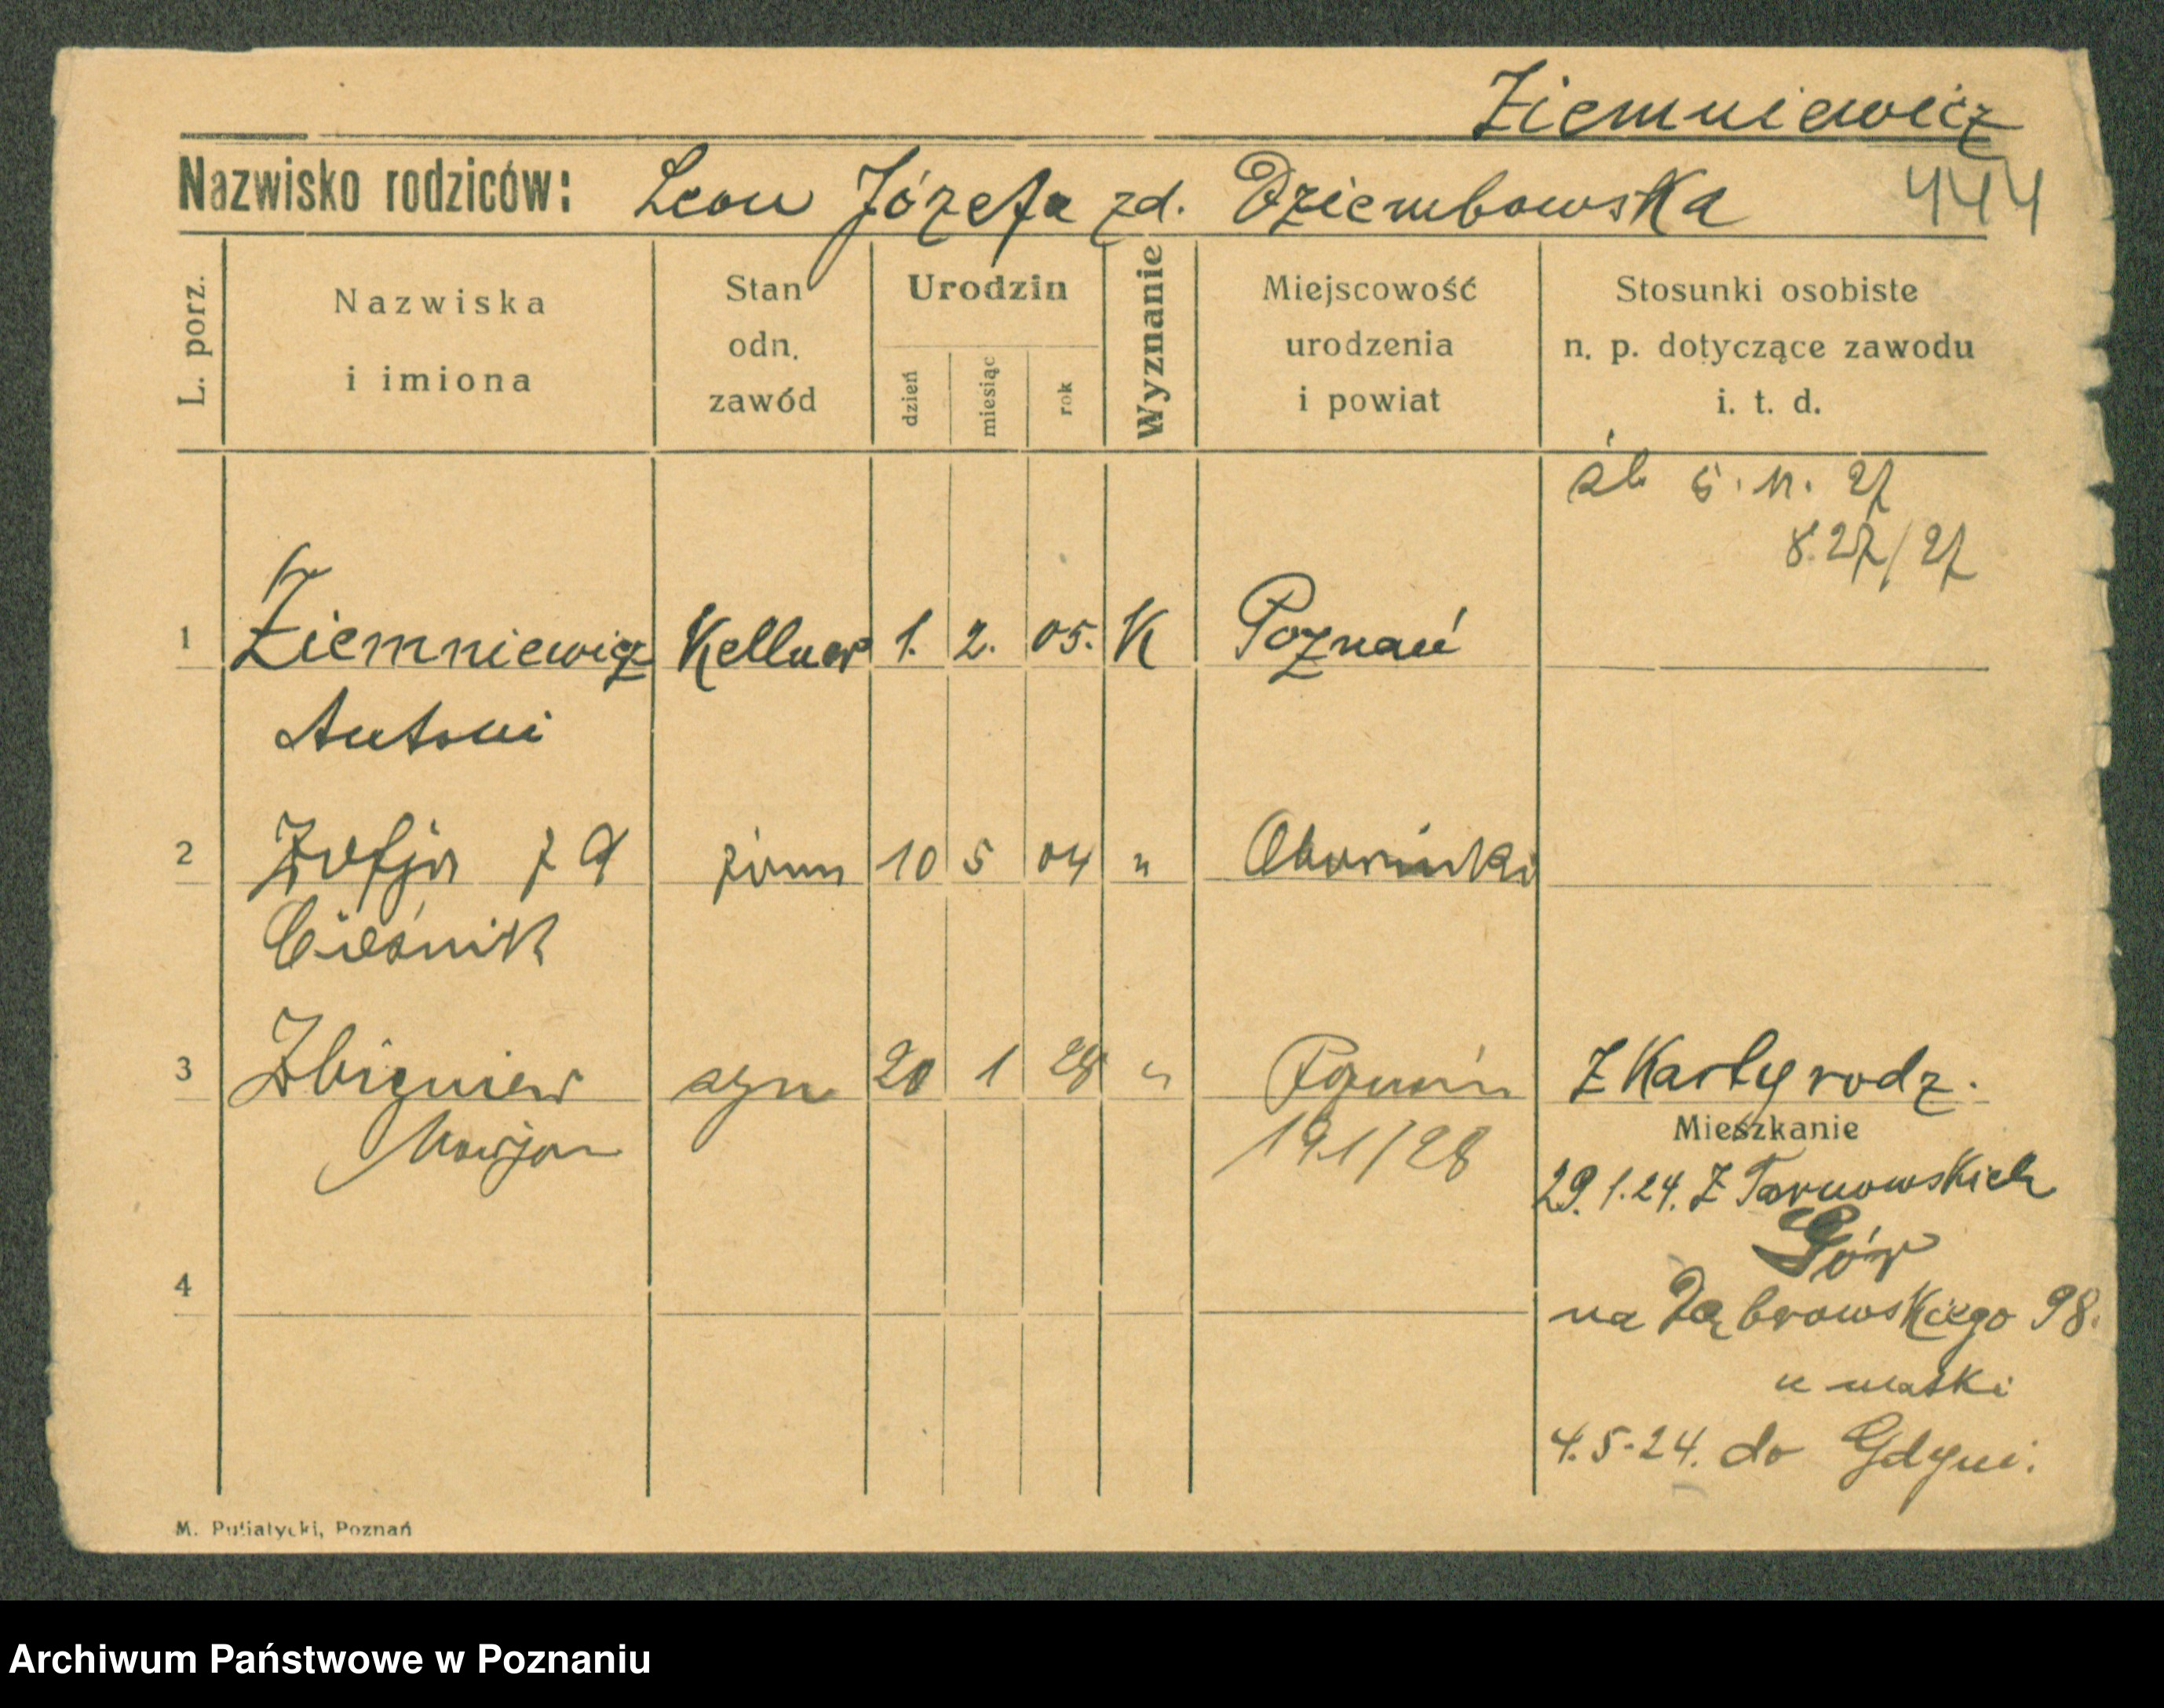 Ziemniewicz
Nazwisko rodziców: Leon Józefa zd. Dziembowska 444
L. porz.
Nazwiska
i imiona
Stan
odn.
zawód
Urodzin
dzień
miesiąc
rok
Wyznanie
Miejscowość
urodzenia
i powiat
Stosunki osobiste
n. p. dotyczące zawodu
i. t. d.
śl. 5. 11. 27
8.27/27
1 Ziemniewicz Kellner 1. 2. 05. K Poznań
Antoni
2 Zofja z d żona 10 5 04 "
Cieśnik
3 Zbigniew syn 20 1 28 " Poznań Z Karty rodz.
Marjan 191/28
Mieszkanie
29. 1. 24. Z Tarnowskich
Gór
4
na Dąbrowskiego 98.
u matki
4. 5-24. do Gdyni.
M. Putiatycki, Poznań
Archiwum Państwowe w Poznaniu